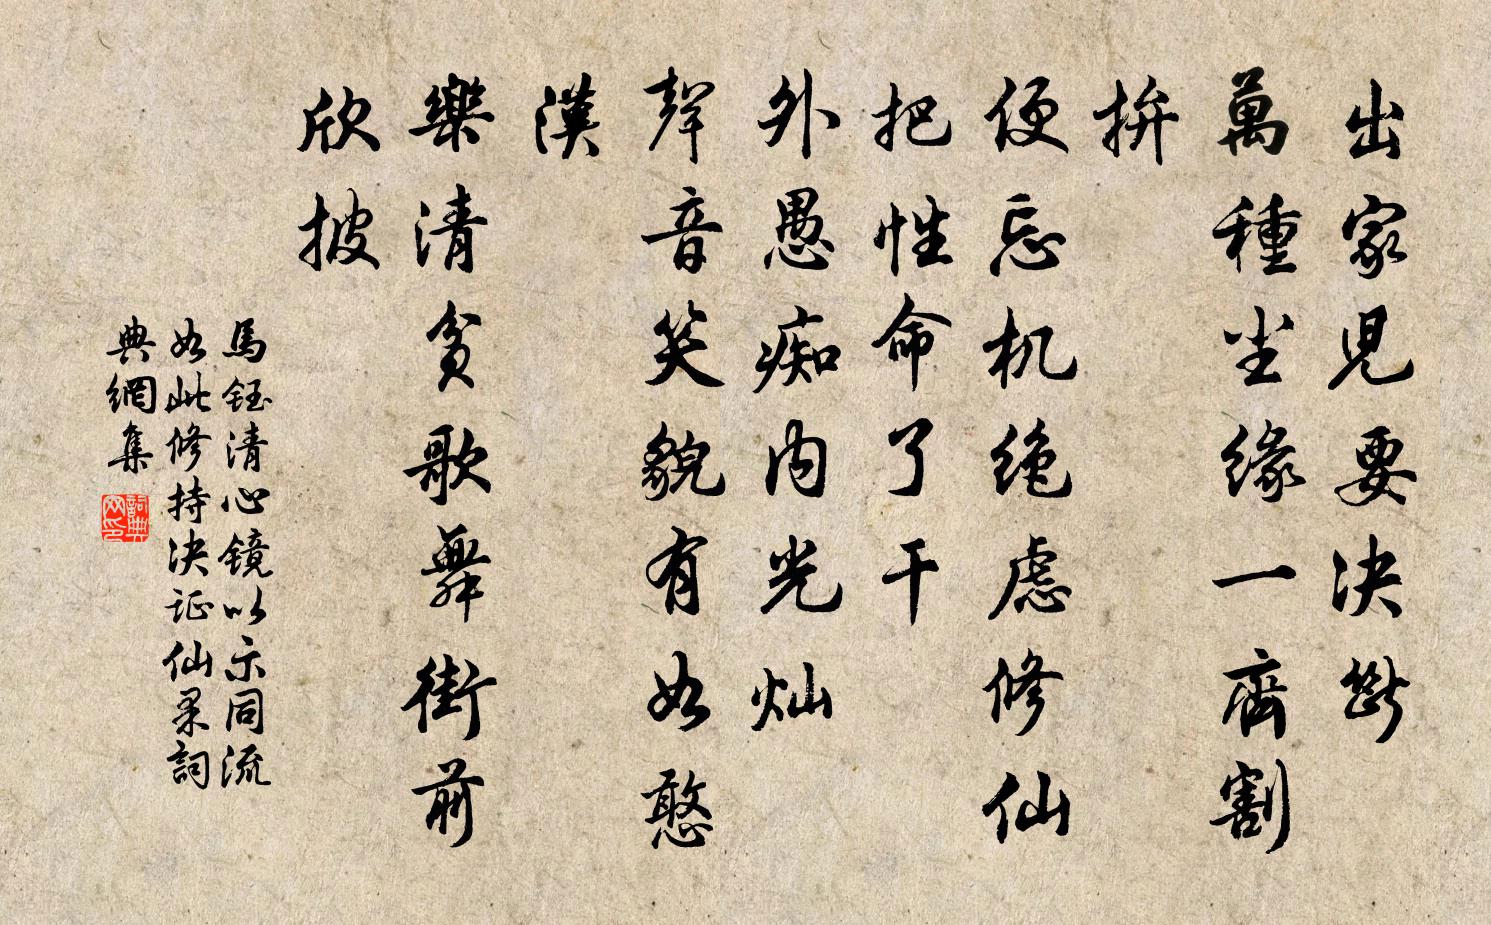 出家兒要决斷
萬種尘缘一齊割
拚
便忘机绝虑修仙
把性命了干
外愚痴内光灿
聲音笑貌有如憨
漢
樂清貧歌舞街前
欣披
馬钰清心镜以示同流
如此修持决证仙果詞
典網集
詞典网印